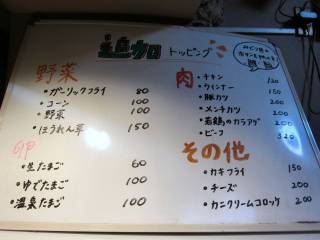 追加 トッピング
野菜
・ガーリックフライ 80
・コーン 100
・野菜 100
・ほうれん草 150
卵
・生たまご 60
・ゆでたまご 100
・温泉たまご 100
肉
・チキン 120
・ウィンナー 150
・豚カツ 200
・メンチカツ 200
・若鶏のカラアゲ 200
・ビーフ 320
その他
・カキフライ 150
・チーズ 200
・カニクリームコロッケ 200